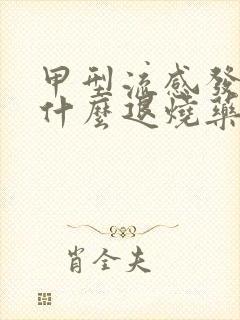 甲型流感發
什麼退燒藥
肖全夫